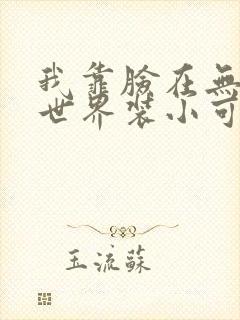 我靠臉在無
世界裝小可
玉流蘇